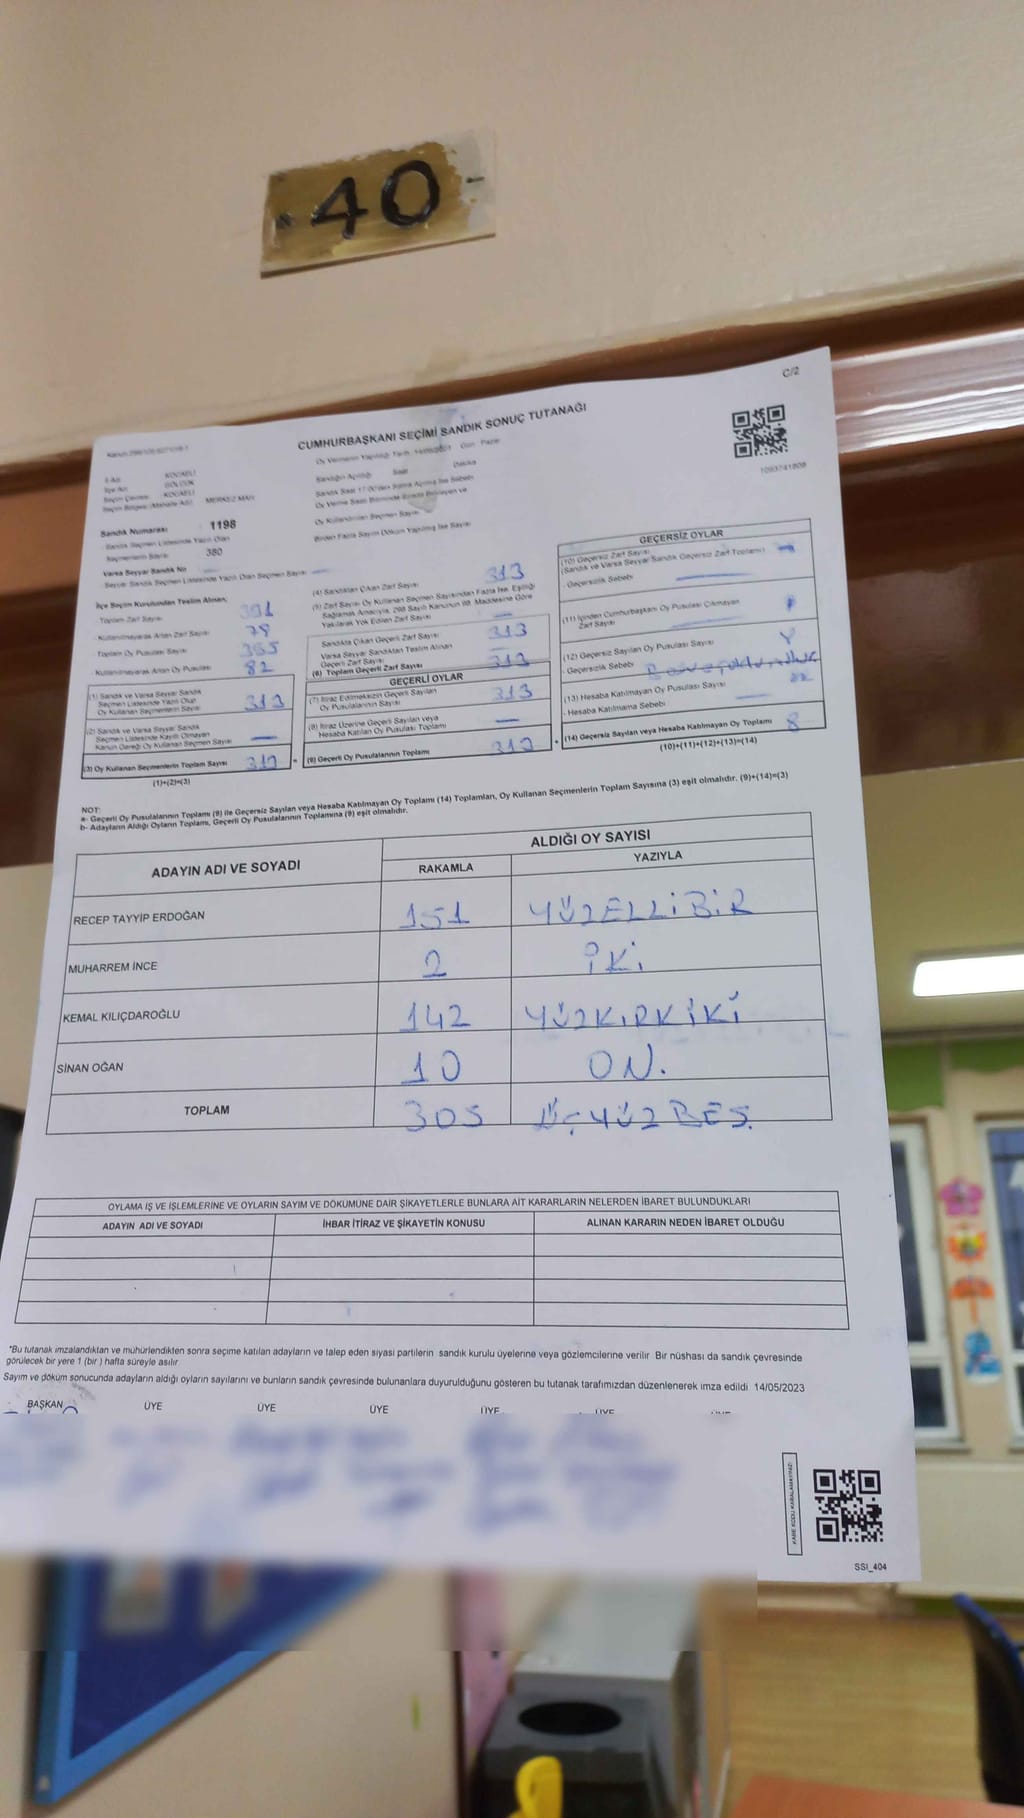 -40-
C/2
CUMHURBAŞKANI SEÇİMİ SANDIK SONUÇ TUTANAĞI
1093741808
İl Adı: KOCAELİ
İlçe Adı: GÖLCÜK
Seçim Çevresi: KOCAELİ
Seçim Bölgesi (Mahalle Adı): MERKEZ MAH.
Oy Vermenin Yapıldığı Tarih: 14/05/2023 Gün: Pazar
Sandığın Açıldığı Saat Dakika
Sandık Saat 17.00'den Sonra Açılmış İse Sebebi
Oy Kullandırılan Seçmen Sayısı
Birden Fazla Sayım Döküm Yapılmış İse Sayısı
Sandık Numarası 1198
- Sandık Seçmen Listesinde Yazılı Olan
Seçmenlerin Sayısı 380
Varsa Seyyar Sandık No
Seyyar Sandık Seçmen Listesinde Yazılı Olan Seçmen Sayısı
İlçe Seçim Kurulundan Teslim Alınan;
Toplam Zarf Sayısı 391
- Kullanılmayarak Artan Zarf Sayısı 78
- Toplam Oy Pusulası Sayısı
Kullanılmayarak Artan Oy Pusulası 82
(1) Sandık ve Varsa Seyyar Sandık
Seçmen Listesinde Yazılı Olup
Oy Kullanan Seçmenlerin Sayısı 313
(2) Sandık ve Varsa Seyyar Sandık
Seçmen Listesinde Kayıtlı Olmayan
Kanun Gereği Oy Kullanan Seçmen Sayısı —
(3) Oy Kullanan Seçmenlerin Toplam Sayısı 313
(1)+(2)=(3)
(4) Sandıktan Çıkan Zarf Sayısı 313
(5) Zarf Sayısı Oy Kullanan Seçmen Sayısından Fazla İse, Eşitliği
Sağlamak Amacıyla, 298 Sayılı Kanunun 98. Maddesine Göre
Yakılarak Yok Edilen Zarf Sayısı —
Sandıkta Çıkan Geçerli Zarf Sayısı 313
Varsa Seyyar Sandıktan Teslim Alınan
Geçerli Zarf Sayısı —
(6) Toplam Geçerli Zarf Sayısı 313
GEÇERLİ OYLAR
(7) İtiraz Edilmeksizin Geçerli Sayılan
Oy Pusulasının Sayısı 313
(8) İtiraz Üzerine Geçerli Sayılan veya
Hesaba Katılan Oy Pusulası Toplamı —
(9) Geçerli Oy Pusulalarının Toplamı 313
GEÇERSİZ OYLAR
(10) Geçersiz Zarf Sayısı
(Sandık ve Varsa Seyyar Sandık Geçersiz Zarf Toplamı) —
- Geçersizlik Sebebi
(11) İçinden Cumhurbaşkanı Oy Pusulası Çıkmayan
Zarf Sayısı
(12) Geçersiz Sayılan Oy Pusulası Sayısı
- Geçersizlik Sebebi
(13) Hesaba Katılmayan Oy Pusulası Sayısı —
- Hesaba Katılmama Sebebi
(14) Geçersiz Sayılan veya Hesaba Katılmayan Oy Toplamı 8
(10)+(11)+(12)+(13)=(14)
NOT:
a- Geçerli Oy Pusulalarının Toplamı (9) ile Geçersiz Sayılan veya Hesaba Katılmayan Oy Toplamı (14) Toplamları, Oy Kullanan Seçmenlerin Toplam Sayısına (3) eşit olmalıdır. (9)+(14)=(3)
b- Adayların Aldığı Oyların Toplamı, Geçerli Oy Pusulalarının Toplamına (9) eşit olmalıdır.
ADAYIN ADI VE SOYADI
ALDIĞI OY SAYISI
RAKAMLA YAZIYLA
RECEP TAYYİP ERDOĞAN 151 YÜZELLİBİR
MUHARREM İNCE 2 İKİ
KEMAL KILIÇDAROĞLU 142 YÜZKIRKİKİ
SİNAN OĞAN 10 ON.
TOPLAM 305 ÜÇYÜZBEŞ.
OYLAMA İŞ VE İŞLEMLERİNE VE OYLARIN SAYIM VE DÖKÜMÜNE DAİR ŞİKAYETLERLE BUNLARA AİT KARARLARIN NELERDEN İBARET BULUNDUKLARI
ADAYIN ADI VE SOYADI İHBAR İTİRAZ VE ŞİKAYETİN KONUSU ALINAN KARARIN NEDEN İBARET OLDUĞU
*Bu tutanak imzalandıktan ve mühürlendikten sonra seçime katılan adayların ve talep eden siyasi partilerin sandık kurulu üyelerine veya gözlemcilerine verilir. Bir nüshası da sandık çevresinde
görülecek bir yere 1 (bir) hafta süreyle asılır.
Sayım ve döküm sonucunda adayların aldığı oyların sayılarını ve bunların sandık çevresinde bulunanlara duyurulduğunu gösteren bu tutanak tarafımızdan düzenlenerek imza edildi 14/05/2023
BAŞKAN ÜYE ÜYE ÜYE ÜYE ÜYE
KARE KODU KARALAMAYINIZ!
SSI_404